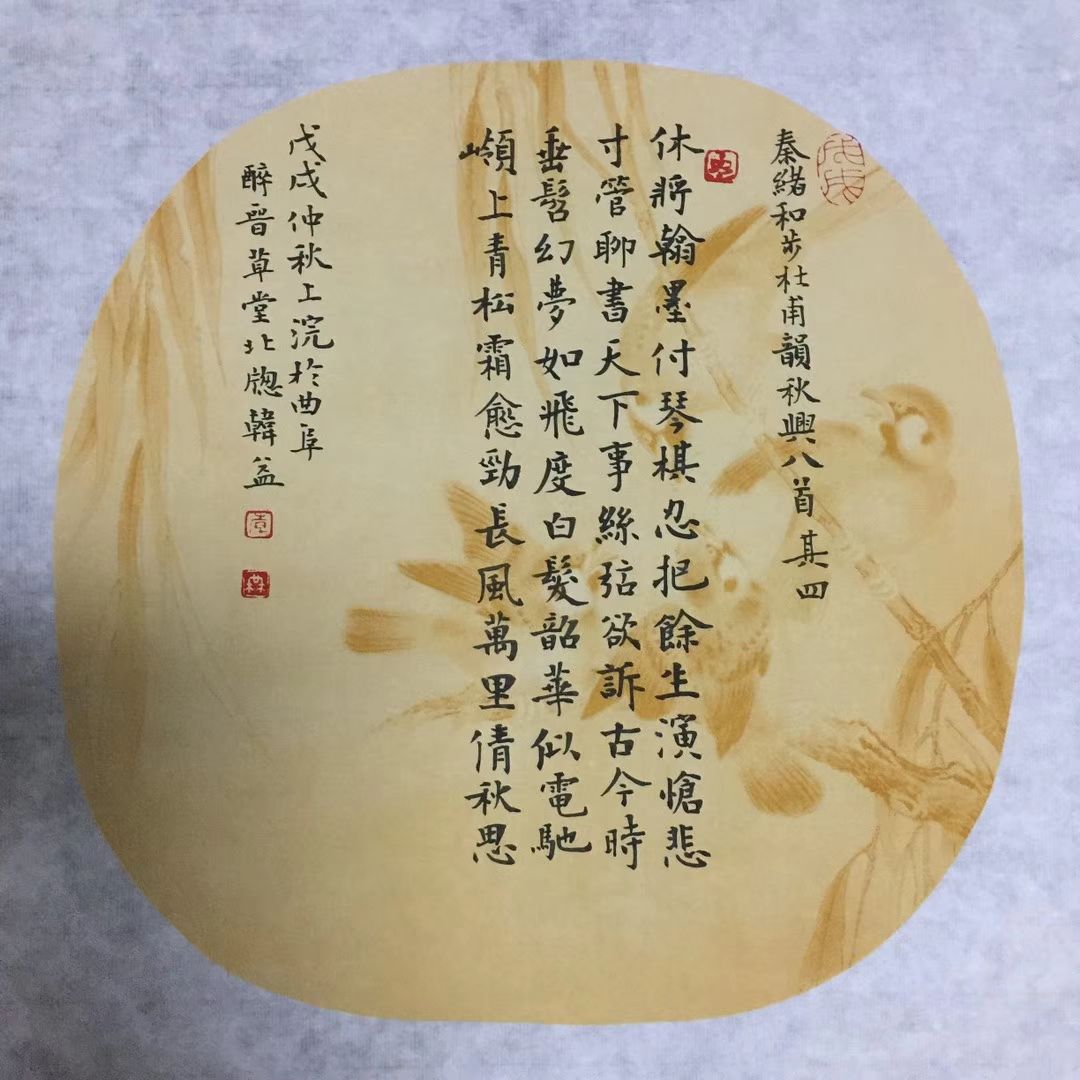 秦緒和步杜甫韻秋興八首其四
休將翰墨付琴棋忍把餘生演愴悲
寸管聊書天下事絲弦欲訴古今時
垂髫幻夢如飛度白髮韶華似電馳
嶺上青松霜愈勁長風萬里倩秋思
戊戌仲秋上浣於曲阜
醉晉草堂北牕韓益
戊戌